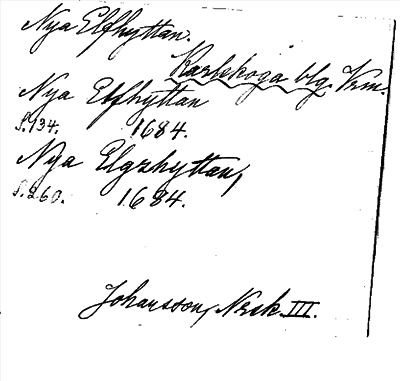 Nya Elfhyttan.
Karlskoga blg. Vrm.
Nya Elfhyttan
S.134. 1684.
Nya Elgzhyttan,
S.260. 1684.
Johansson, Nrsk III.